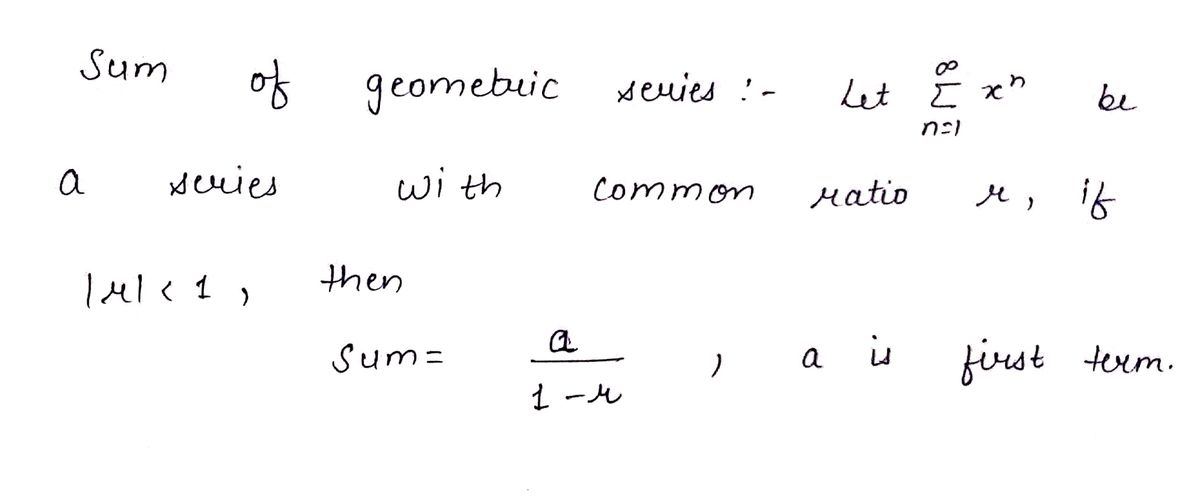 Sum of geometric series :- Let ∑_{n=1}^{∞} x^n be
a series with common ratio r, if
|r| < 1, then
Sum = a/(1-r), a is first term.